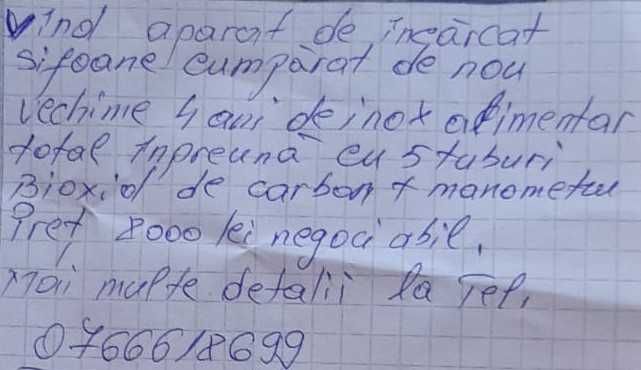 Vind aparat de încărcat
sifoane cumpărat de nou
vechime 4 ani de inox alimentar
total înpreună cu 5 tuburi
Bioxid de carbon + manometru
Preț 8000 lei negociabil.
Mai multe detalii la Tel.
0766618699